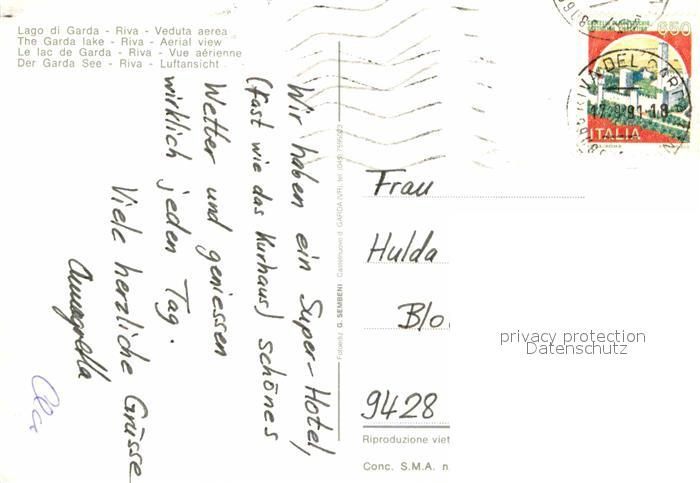 Lago di Garda - Riva - Veduta aerea
The Garda lake - Riva - Aerial view
Le lac de Garda - Riva - Vue aérienne
Der Garda See - Riva - Luftansicht
Wir haben ein Super-Hotel,
(fast wie das Kurhaus) schönes
Wetter und geniessen
wirklich jeden Tag.
Viele herzliche Grüsse
Fotoediz. G. SEMBENI Castelnuovo d. GARDA (VR), tel. (045)
650
RIVA DEL GARDA
17.9.91-18
ITALIA
Frau
Hulda
Blo
9428
privacy protection
Datenschutz
Riproduzione viet
Conc. S.M.A. n